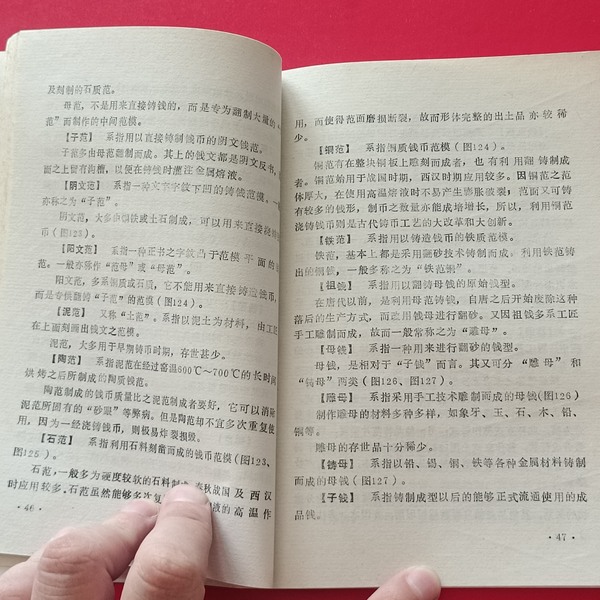 及刻制的石质范。
母范，不是用来直接铸钱的，而是专为翻制大量的
范”而制作的中间范模。
【子范】 系指用以直接铸制钱币的阴文钱范。
子范多由母范翻制而成。其上的钱文都是阴文反书，
面之上留有沟槽，以便在持续时灌注金属熔液。
【阴文范】 系指一种文字字纹下凹的铸钱范模。一
亦称之为“子范”。
阴文范，大多由铜铁或土石制成，可以用来直接浇铸
币（图123）。
【阳文范】 系指一种正书之字纹凸于范模平面的
范。一般亦称作“范母”或“母范”。
阳文范，多系铜质或石质，它不能用来直接铸造钱币，
而是专供翻铸“子范”的范模（图124）。
【泥范】 又称“土范”。系指以泥土为材料，由工匠
在上面刻画出钱文之范模。
泥范，大多用于早期铸币时期，存世甚少。
【陶范】 系指泥范在经过窑温600℃～700℃的长时间
烘烤之后所制成的陶质钱范。
陶范制成的钱币质量比之泥范制成者要好，它可以消除
泥范所固有的“砂眼”等弊病。但是陶范却不宜多次重复使
用，因为一经浇铸钱币，则极易炸裂损毁。
【石范】 系指利用石料刻凿而成的钱币范模（图123、
图125）。
石范，一般多为硬度较软的石料制成，春秋战国及西汉
时应用较多。石范虽然能够多次复 液的高温作
·46·
用，而使得范面磨损断裂，故而形体完整的出土品亦较稀
少。
【铜范】 系指铜质钱币范模（图124）。
铜范有在整块铜板上雕刻而成者，也有利用翻铸制成
者。铜范始用于战国时期，西汉时期应用较多。因铜范之范
体厚大，在使用高温熔液时不易产生膨胀破裂；范面又可铸
有较多的钱形，制币之数量亦能成培增长，所以，利用铜范
浇铸钱币则是古代铸币工艺的大改革和大创新。
【铁范】 系指用以铸造钱币的铁质范模。
铁范，基本上都是采用翻砂技术铸制而成。利用铁范铸
出的铜钱，一般多称之为“铁范铜”。
【祖钱】 系指用以翻铸母钱的原始钱型。
在唐代以前，是利用母范铸钱，自唐之后开始废除这种
落后的生产方式，而改用钱母进行翻砂。又因祖钱多系工匠
手工雕制而成，故而一般常称之为“雕母”。
【母钱】 系指一种用来进行翻砂的钱型。
母钱，是相对于“子钱”而言。其又可分“雕母”和
“铸母”两类（图126、图127）。
【雕母】 系指采用手工技术雕制而成的母钱（图126）
制作雕母的材料多种多样，如象牙、玉、石、木、铅、
铜等。
雕母的存世品十分稀少。
【铸母】 系指以铅、锡、铜、铁等各种金属材料铸制
而成的母钱（图127）。
【子钱】 系指铸制成型以后的能够正式流通使用的成
品钱。
·47·